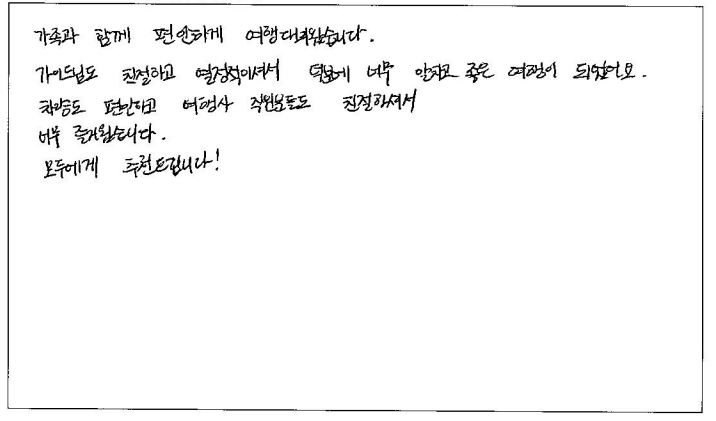 가족과 함께 편안하게 여행다녀왔습니다.
가이드님도 친절하고 열정적이셔서 덕분에 너무 알차고 좋은 여행이 되었어요.
차량도 편안하고 여행사 직원분들도 친절하셔서
너무 즐거웠습니다.
모두에게 추천드립니다!